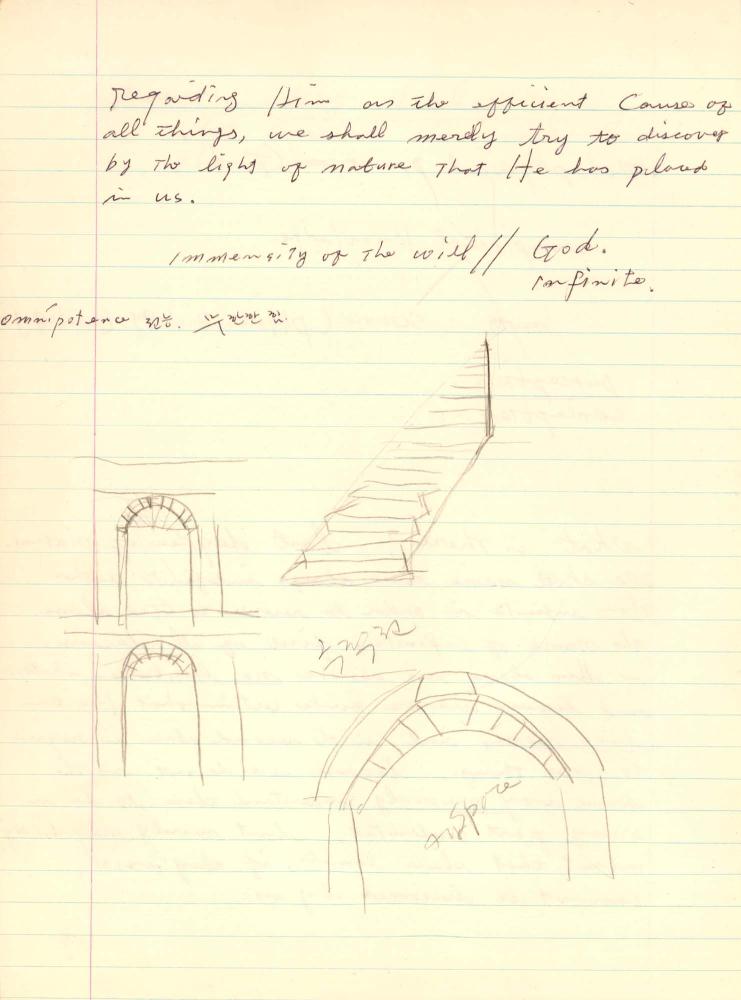 regarding Him as the efficient Cause of
all things, we shall merely try to discover
by The light of nature That He has placed
in us.
immensity of The will // God.
infinite.
omnipotence 전능. 무한한 힘.